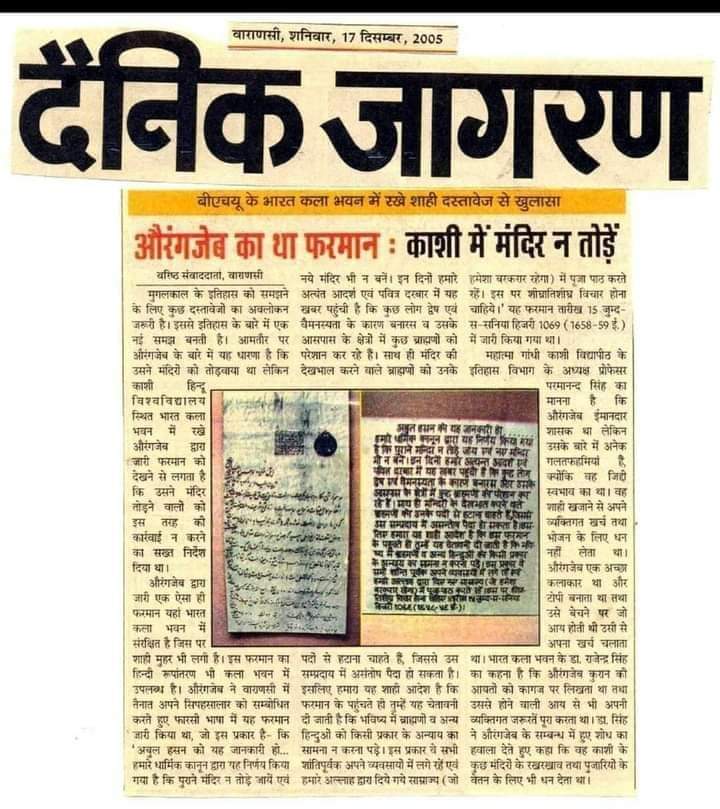 वाराणसी, शनिवार, 17 दिसम्बर, 2005
दैनिक जागरण
बीएचयू के भारत कला भवन में रखे शाही दस्तावेज से खुलासा
औरंगजेब का था फरमान : काशी में मंदिर न तोड़ें
वरिष्ठ संवाददाता, वाराणसी
मुगलकाल के इतिहास को समझने
के लिए कुछ दस्तावेजों का अवलोकन
जरूरी है। इससे इतिहास के बारे में एक
नई समझ बनती है। आमतौर पर
औरंगजेब के बारे में यह धारणा है कि
उसने मंदिरों को तोड़वाया था लेकिन
काशी हिन्दू
विश्वविद्यालय
स्थित भारत कला
भवन में रखे
औरंगजेब द्वारा
जारी फरमान को
देखने से लगता है
कि उसने मंदिर
तोड़ने वालों को
इस तरह की
कार्रवाई न करने
का सख्त निर्देश
दिया था।
औरंगजेब द्वारा
जारी एक ऐसा ही
फरमान यहां भारत
कला भवन में
संरक्षित है जिस पर
शाही मुहर भी लगी है। इस फरमान का
हिन्दी रूपांतरण भी कला भवन में
उपलब्ध है। औरंगजेब ने वाराणसी में
तैनात अपने सिपहसालार को सम्बोधित
करते हुए फारसी भाषा में यह फरमान
जारी किया था, जो इस प्रकार है- कि
'अबुल हसन को यह जानकारी हो...
हमारे धार्मिक कानून द्वारा यह निर्णय किया
गया है कि पुराने मंदिर न तोड़े जायें एवं
नये मंदिर भी न बनें। इन दिनों हमारे
अत्यंत आदर्श एवं पवित्र दरबार में यह
खबर पहुंची है कि कुछ लोग द्वेष एवं
वैमनस्यता के कारण बनारस व उसके
आसपास के क्षेत्रों में कुछ ब्राह्मणों को
परेशान कर रहे हैं। साथ ही मंदिर की
देखभाल करने वाले ब्राह्मणों को उनके
अबुल हसन को यह जानकारी हो,
हमारे धार्मिक कानून द्वारा यह निर्णय किया गया
है कि पुराने मन्दिर न तोड़े जाय एवं नए मन्दिर
भी न बनें। इन दिनों हमारे अत्यन्त आदर्श एवं
पवित्र दरबार में यह खबर पहुंची है कि कुछ लोग
द्वेष एवं वैमनस्यता के कारण बनारस और उसके
आसपास के क्षेत्रों में कुछ ब्राह्मणों को परेशान कर
रहे हैं। साथ ही मन्दिरों के देखभाल करने वाले
ब्राह्मणों को उनके पदों से हटाना चाहते हैं, जिससे
उस सम्प्रदाय में असन्तोष पैदा हो सकता है। इस
लिए हमारा यह शाही आदेश है कि इस फरमान
के पहुंचते ही तुम्हें यह चेतावनी दी जाती है कि भवि
पदों से हटाना चाहते हैं, जिससे उस
सम्प्रदाय में असंतोष पैदा हो सकता है।
इसलिए हमारा यह शाही आदेश है कि
फरमान के पहुंचते ही तुम्हें यह चेतावनी
दी जाती है कि भविष्य में ब्राह्मणों व अन्य
हिन्दुओं को किसी प्रकार के अन्याय का
सामना न करना पड़े। इस प्रकार वे सभी
शांतिपूर्वक अपने व्यवसायों में लगे रहें एवं
हमारे अल्लाह द्वारा दिये गये साम्राज्य (जो
हमेशा बरकरार रहेगा) में पूजा पाठ करते
रहें। इस पर शीघ्रातिशीघ्र विचार होना
चाहिये।' यह फरमान तारीख 15 जुम्द-
स-सनिया हिजरी 1069 (1658-59 ई.)
में जारी किया गया था।
महात्मा गांधी काशी विद्यापीठ के
इतिहास विभाग के अध्यक्ष प्रोफेसर
परमानन्द सिंह का
मानना है कि
औरंगजेब ईमानदार
शासक था लेकिन
उसके बारे में अनेक
गलतफहमियां हैं,
क्योंकि वह जिद्दी
स्वभाव का था। वह
शाही खजाने से अपने
व्यक्तिगत खर्च तथा
भोजन के लिए धन
नहीं लेता था।
औरंगजेब एक अच्छा
कलाकार था और
टोपी बनाता था तथा
उसे बेचने पर जो
आय होती थी उसी से
अपना खर्च चलाता
था। भारत कला भवन के डा. राजेन्द्र सिंह
का कहना है कि औरंगजेब कुरान की
आयतों को कागज पर लिखता था तथा
उससे होने वाली आय से भी अपनी
व्यक्तिगत जरूरतें पूरा करता था। डा. सिंह
ने औरंगजेब के सम्बन्ध में हुए शोध का
हवाला देते हुए कहा कि वह काशी के
कुछ मंदिरों के रखरखाव तथा पुजारियों के
वेतन के लिए भी धन देता था।